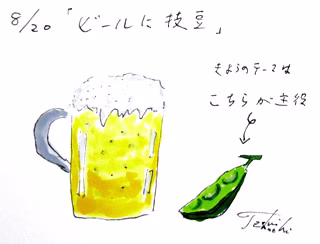 8/20 「ビールに枝豆」
きょうのテーマは
こちらが主役